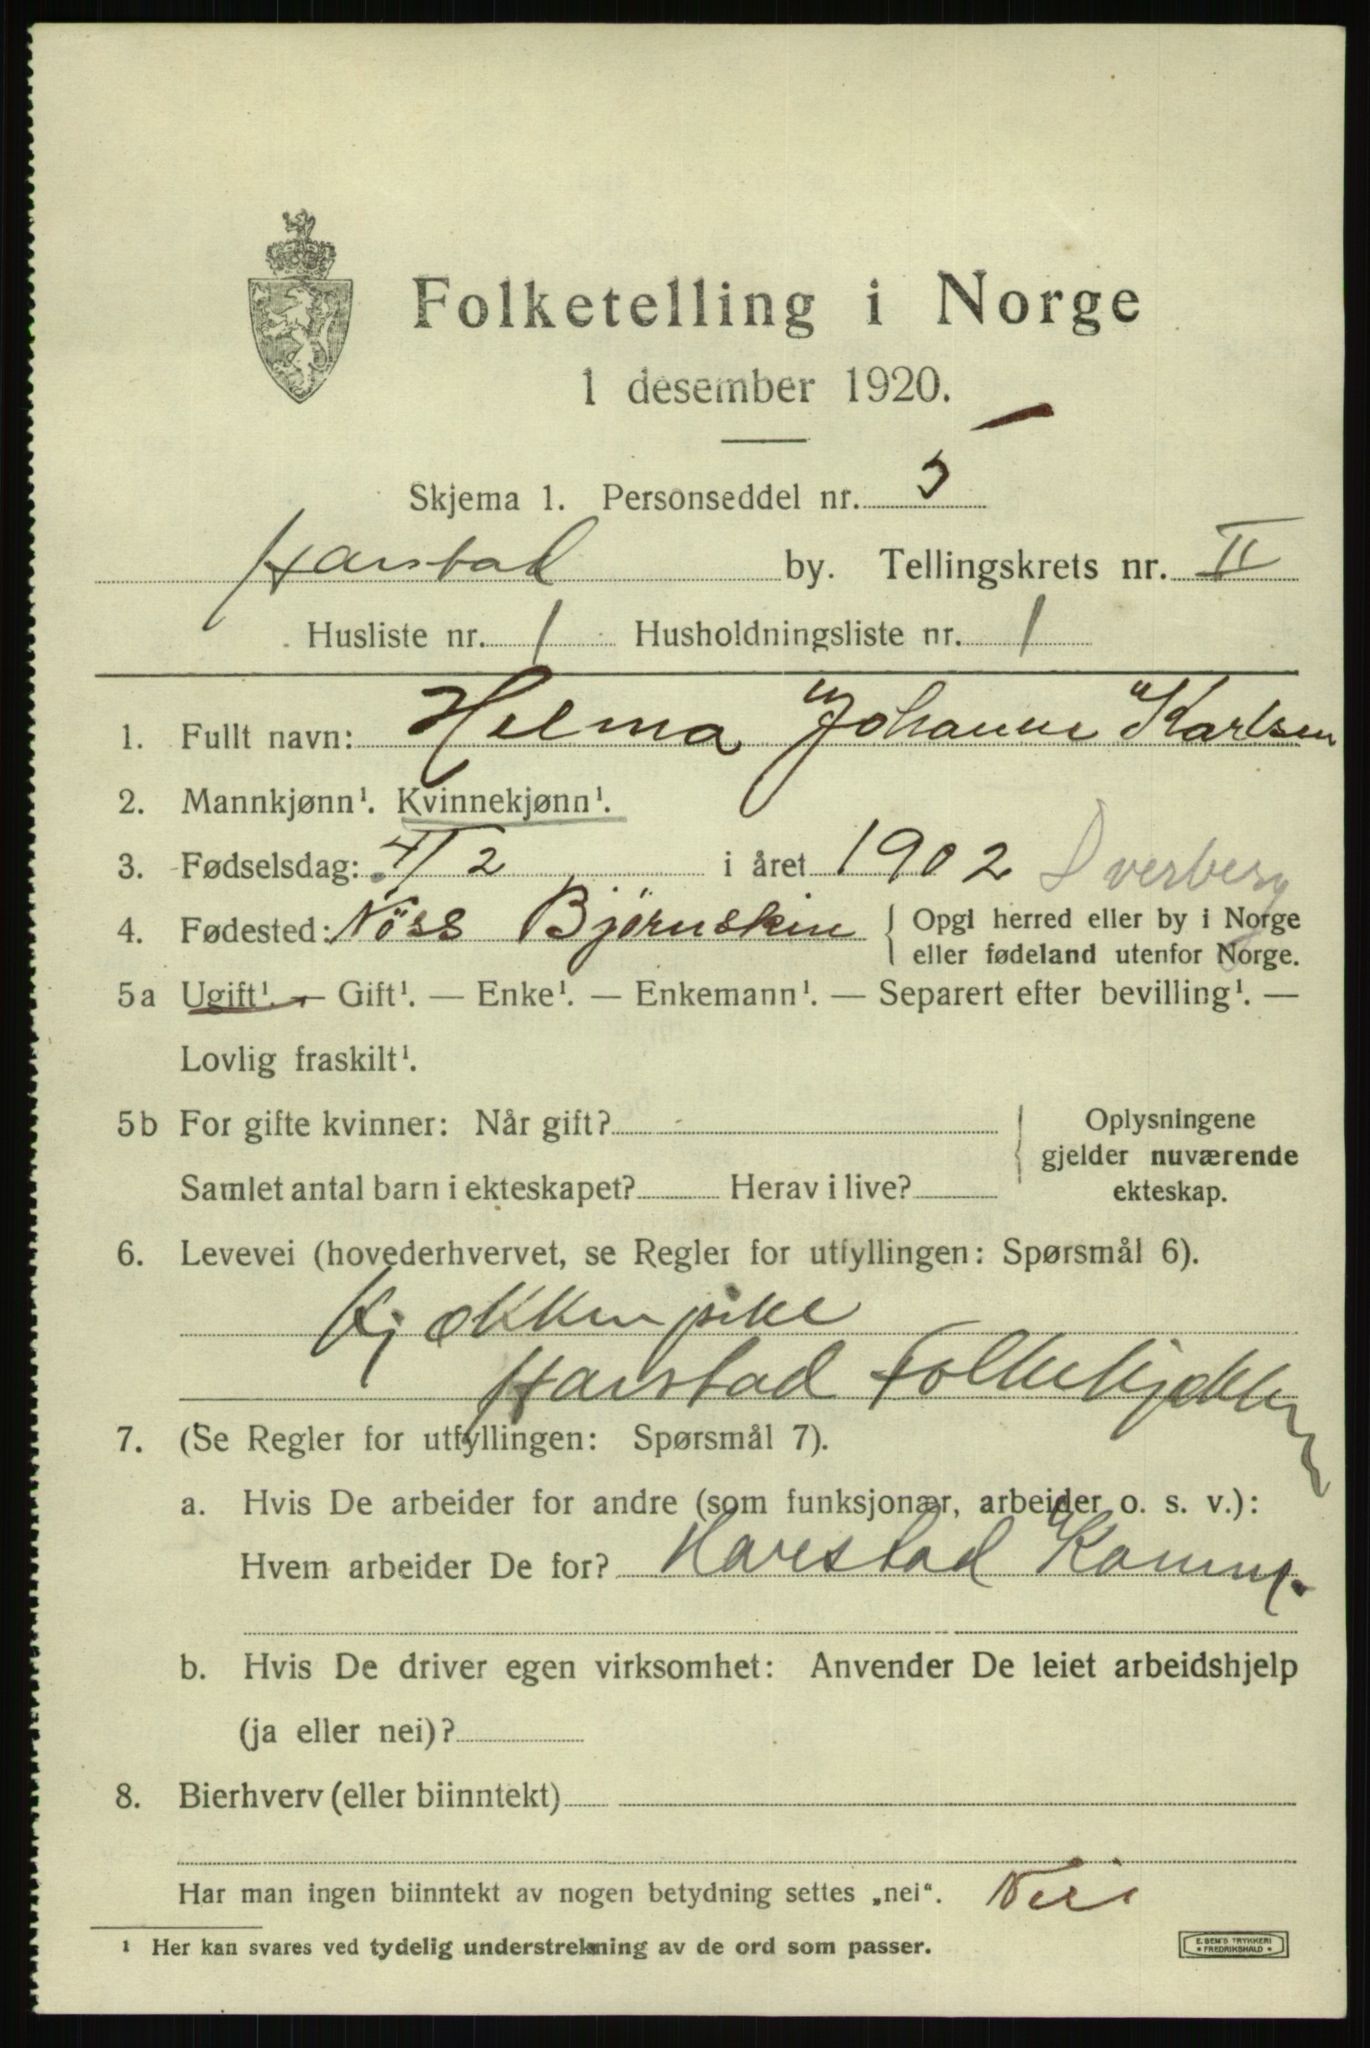 Folketelling i Norge
1 desember 1920.
Skjema 1. Personseddel nr. 5
Harstad by. Tellingskrets nr. II
Husliste nr. 1 Husholdningsliste nr. 1
1. Fullt navn: Helma Johanne Karlsen
2. Mannkjønn¹. Kvinnekjønn¹.
3. Fødselsdag: 4/2 i året 1902 Dverberg
4. Fødested: Nöss Bjørnskin { Opgi herred eller by i Norge
eller fødeland utenfor Norge.
5a Ugift¹. — Gift¹. — Enke¹. — Enkemann¹. — Separert efter bevilling¹. —
Lovlig fraskilt¹.
5b For gifte kvinner: Når gift? { Oplysningene
gjelder nuværende
Samlet antal barn i ekteskapet? Herav i live? ekteskap.
6. Levevei (hovederhvervet, se Regler for utfyllingen: Spørsmål 6).
Kjøkkenpike
Harstad Folkekjøkken
7. (Se Regler for utfyllingen: Spørsmål 7).
a. Hvis De arbeider for andre (som funksjonær, arbeider o. s. v.):
Hvem arbeider De for? Harstad Komm.
b. Hvis De driver egen virksomhet: Anvender De leiet arbeidshjelp
(ja eller nei)?
8. Bierhverv (eller biinntekt)
Har man ingen biinntekt av nogen betydning settes „nei“. Nei
¹ Her kan svares ved tydelig understrekning av de ord som passer.
E. SEM'S TRYKKERI
* FREDRIKSHALD *